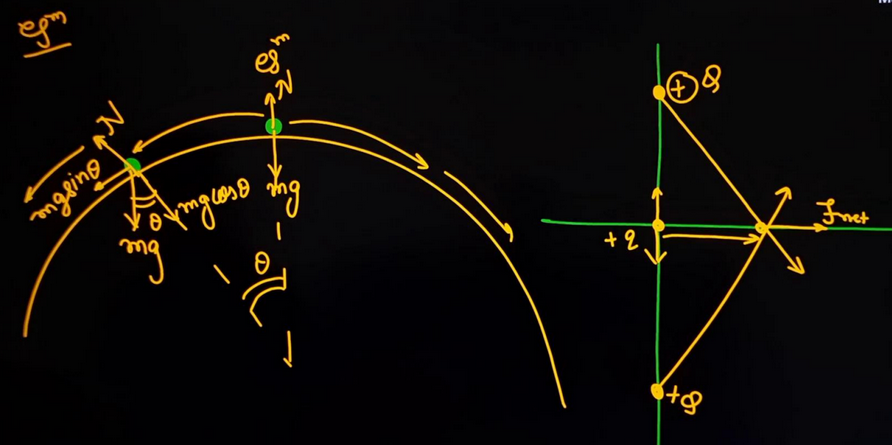 eqᵐ
eqᵐ
N
N
mg sinθ
θ
mg cosθ
mg
mg
θ
+ Q
+q
Fnet
+Q